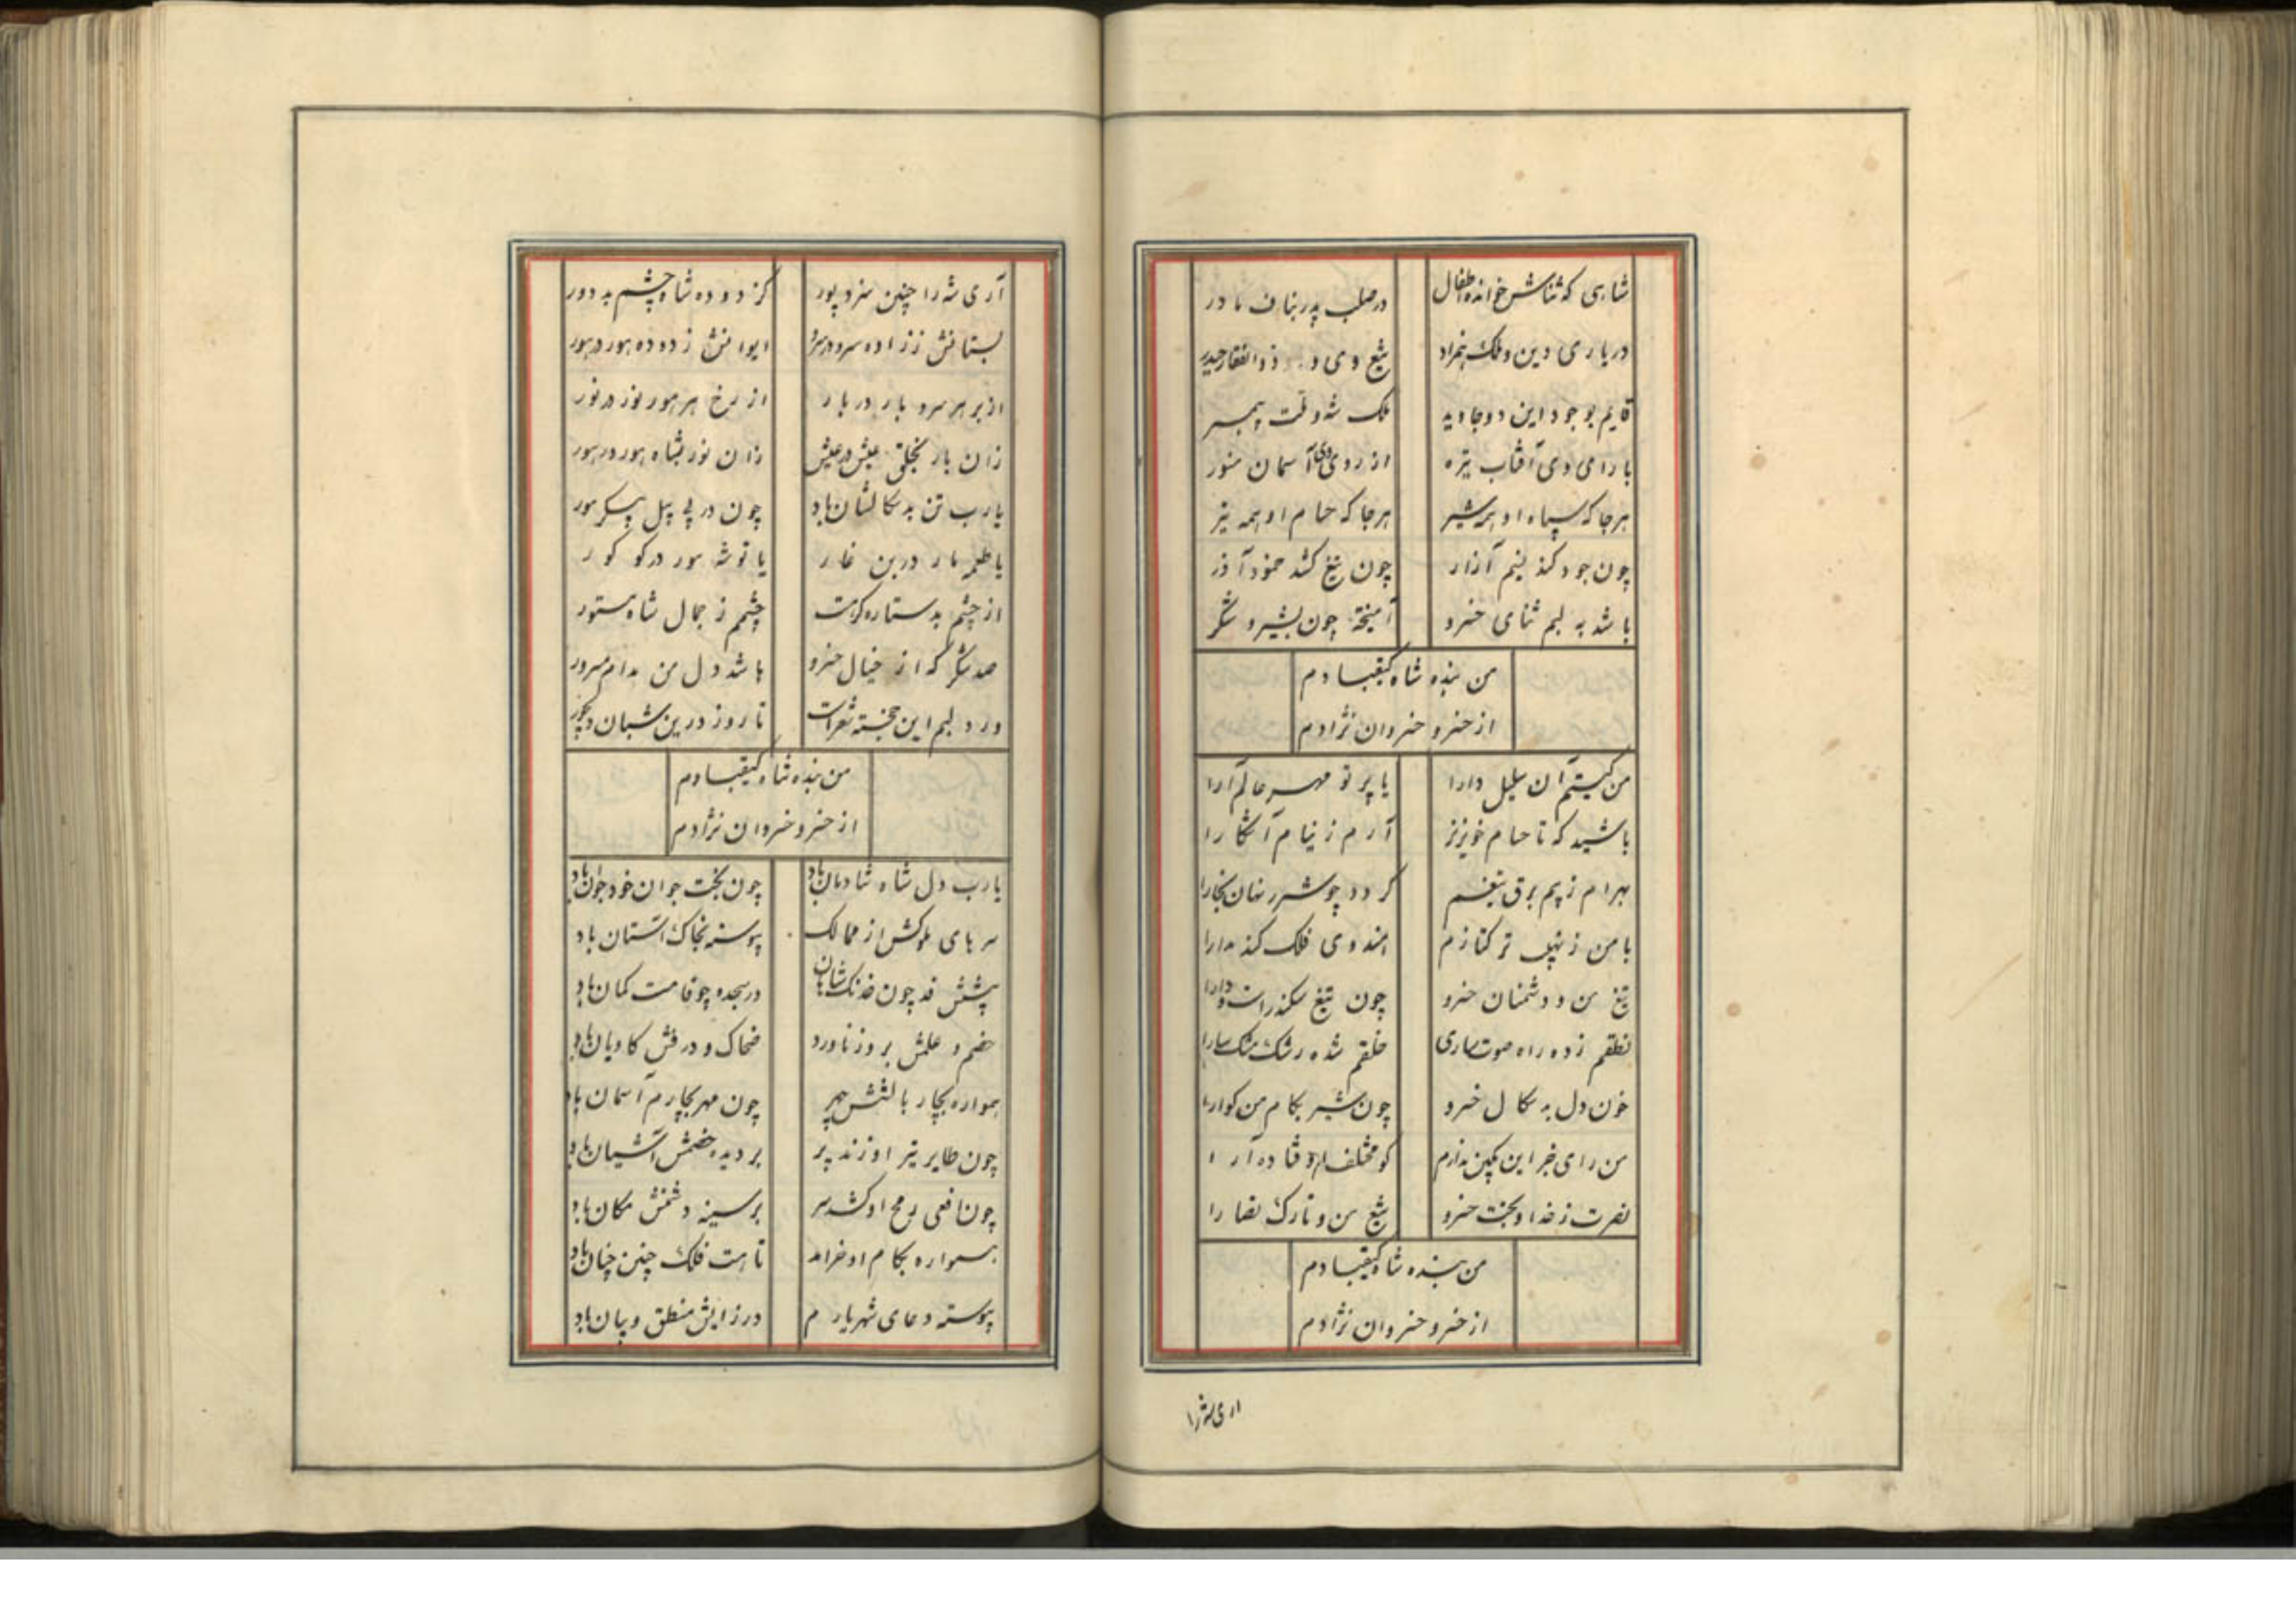 شاهی که ثناش خوانده اطفال در صلب پدر بناف مادر
در یاری دین و ملک همزاد تیغ وی و ذوالفقار حیدر
قایم بوجود این دو جاوید ملک شه و ملت پیمبر
با رای وی آفتاب تیره از روی وی آسمان منور
هرجا که سپاه او همه شیر هرجا که حسام او همه تیز
چون جود کند نسیم آزار چون تیغ کشد خمود آذر
باشد به لبم ثنای خسرو آمیخته چون بشیر و شکر
من بنده شاه کیقبادم
از خسرو خسروان نژادم
من کیستم آن سلیل دارا یا پرتو مهر عالم آرا
باشید که تا حسام خونریز آرم ز نیام آشکارا
بهرام ز بیم برق تیغم گردد چو شرر نهان بخارا
با من ز نهیب ترکتازم هندوی فلک کند مدارا
تیغ من و دشمنان خسرو چون تیغ سکندر است و دارا
نطقم زده راه صوت ساری خلقم شده رشک مشک سارا
خون دل بدسکال خسرو چون شیر بکام من گوارا
من رای خبر این یکین ندارم گو مختلف اوفتاده آرا
نصرت ز خدا و بخت خسرو تیغ من و تارک نصارا
من بنده شاه کیقبادم
از خسرو خسروان نژادم
اری شه را
آری شه را چنین سزد پور کز دوده شاه چشم بد دور
بستانش ز زاده سرو در سرو ایوانش ز دوده هور در هور
از بر هر سرو بار در بار از رخ هر هور نور در نور
زان بار بخلق عیش در عیش زان نور بشاه هور در هور
یارب تن بدسکالشان باد چون در پی پیل پیکر مور
یا طعمه مار در بن غار یا توشه مور در گو گور
از چشم بد ستاره گر هست چشمم ز جمال شاه مستور
صد شکر که از خیال خسرو باشد دل من مدام مسرور
ورد لبم این خجسته شعر است تا روز درین شبان دیجور
من بنده شاه کیقبادم
از خسرو خسروان نژادم
یارب دل شاه شادمان باد چون بخت جوان خود جوان باد
سرهای ملوکش از ممالک پیوسته بخاک آستان باد
پشتش قد چون خدنگ شاهان در سجده چو قامت کمان باد
خصم و علمش بروز ناورد ضحاک و درفش کاویان باد
همواره بچار بالشش چهر چون مهر بچارم آسمان باد
چون طایر تیر او زند پر بر دیده خصمش آشیان باد
چون افعی رمح او کشد سر بر سینه دشمنش مکان باد
همواره بکام او خرامد تا هست فلک چنین چنان باد
پیوسته دعای شهریارم درزایش منطق و بیان باد